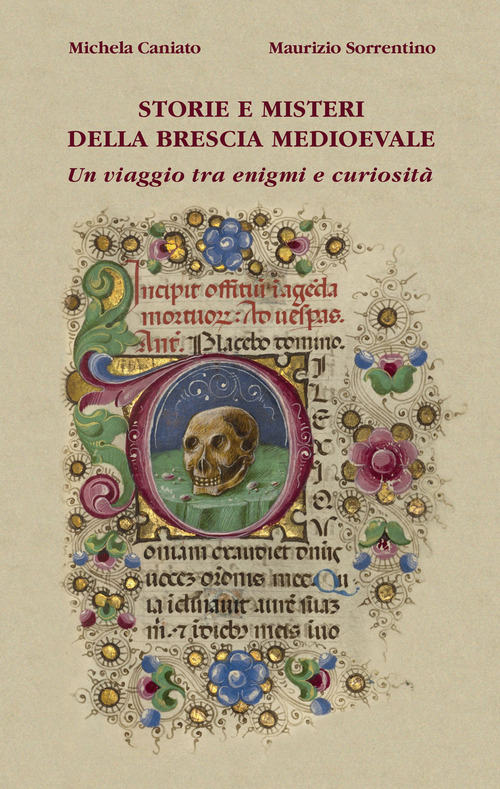 Michela Caniato Maurizio Sorrentino
STORIE E MISTERI
DELLA BRESCIA MEDIOEVALE
Un viaggio tra enigmi e curiosità
Incipit offitiũ ĩ agẽda
mortuoꝝ: Ad uespas.
Antꝭ. Placebo domino.
D
ILEXI
QV
oniam exaudiet dn̄s
uocez orõnis mee Qu
ia iclinauit aurẽ suaz
m̃. ⁊ ĩ dieb9 meis ĩuo